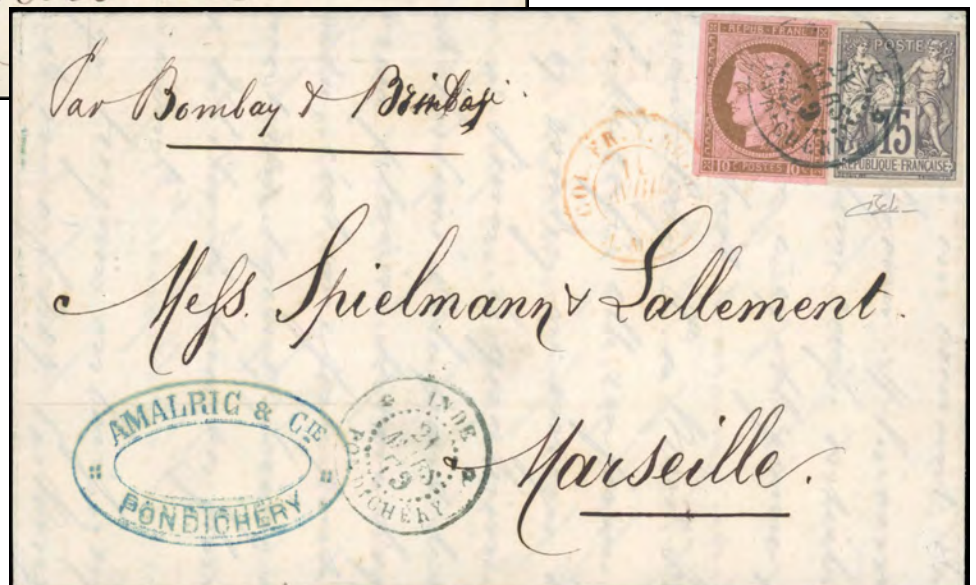 Par Bombay & Brindisi
REPUB FRANC
10 C POSTES 10 C
POSTE
15
REPUBLIQUE FRANÇAISE
COL. FR.
11
AVRIL
Mess. Spielmann & Lallement.
Marseille.
AMALRIC & CIE
PONDICHERY
INDE
21
MARS
79
PONDICHERY